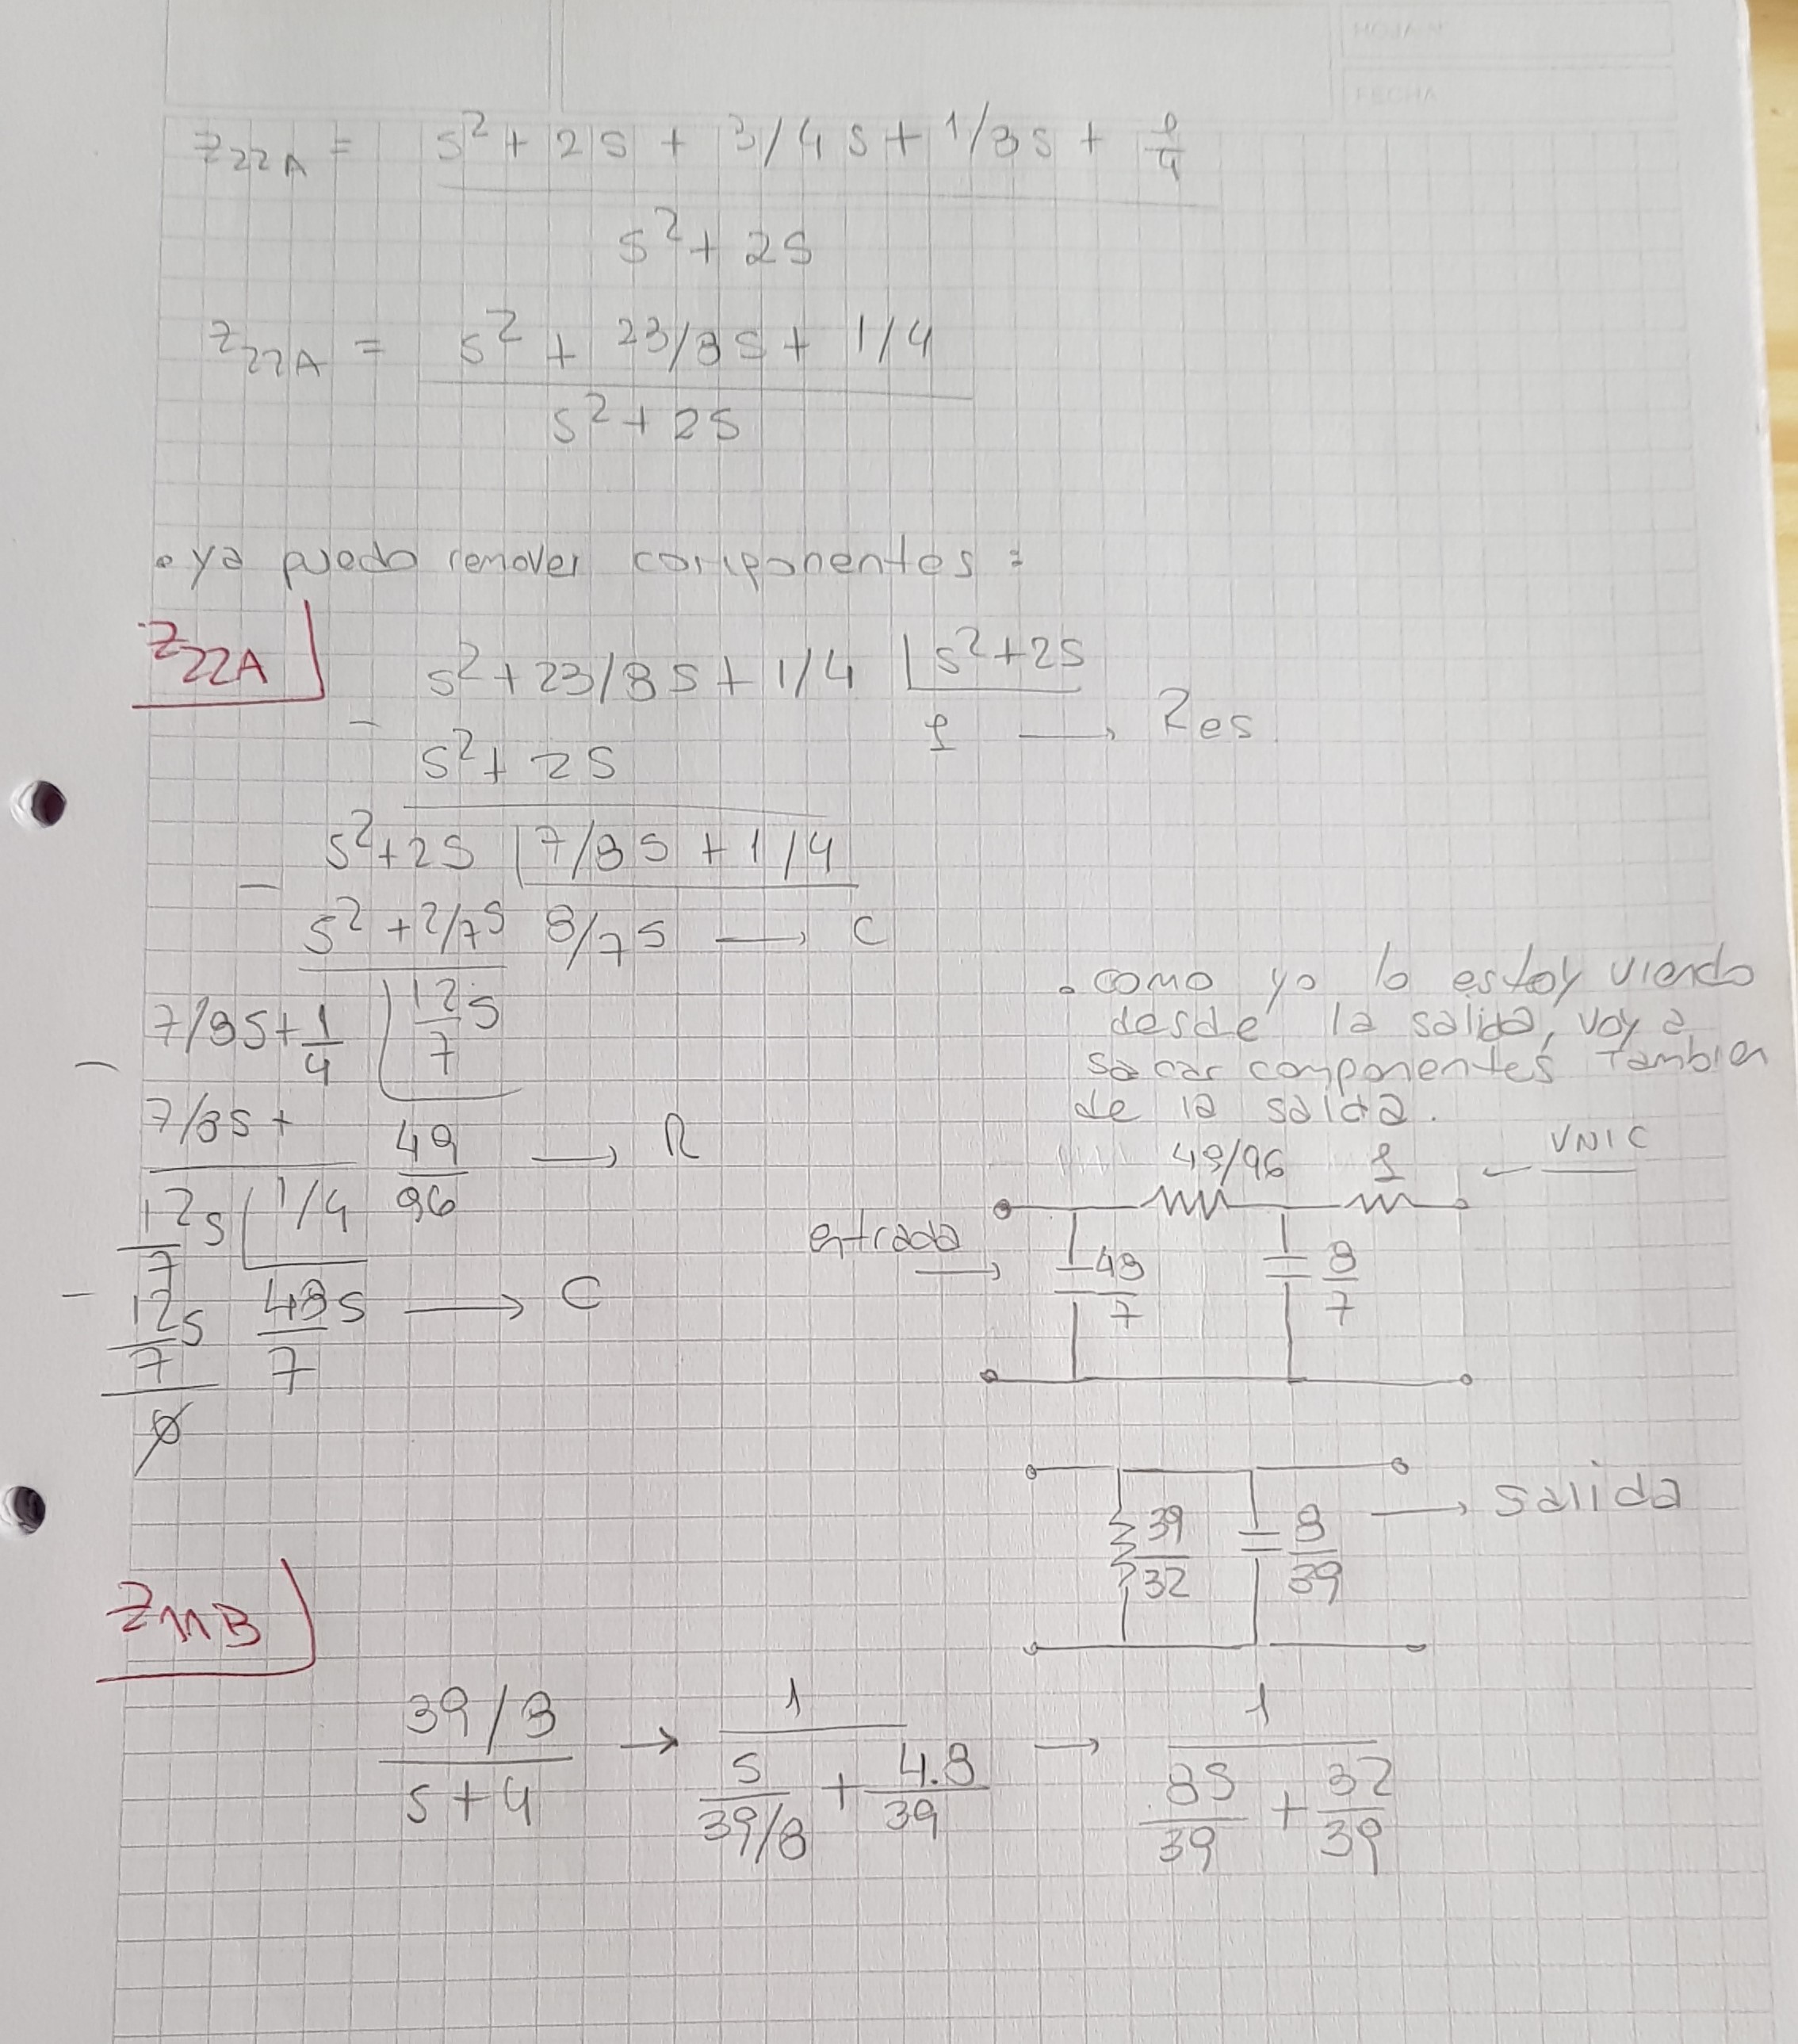 HOJA Nº
FECHA
Z22A = (s² + 2s + 3/4 s + 1/8 s + 1/4) / (s² + 2s)
Z22A = (s² + 23/8 s + 1/4) / (s² + 2s)
• ya puedo remover componentes:
Z22A
s² + 23/8 s + 1/4 | s² + 2s
- s² + 2s
1 → Res
s² + 2s | 7/8 s + 1/4
- s² + 2/7 s
8/7 s → C
7/8 s + 1/4 | 12/7 s
- 7/8 s +
49/96 → R
12/7 s | 1/4
- 12/7 s
48/7 s → C
0
• como yo lo estoy viendo
desde la salida, voy a
sacar componentes tambien
de la salida.
49/96 1 ← VNIC
entrada →
48/7
8/7
39/32
8/39
→ salida
Z11B
(39/8) / (s + 4) → 1 / (s/(39/8) + 4.8/39) → 1 / (8s/39 + 32/39)